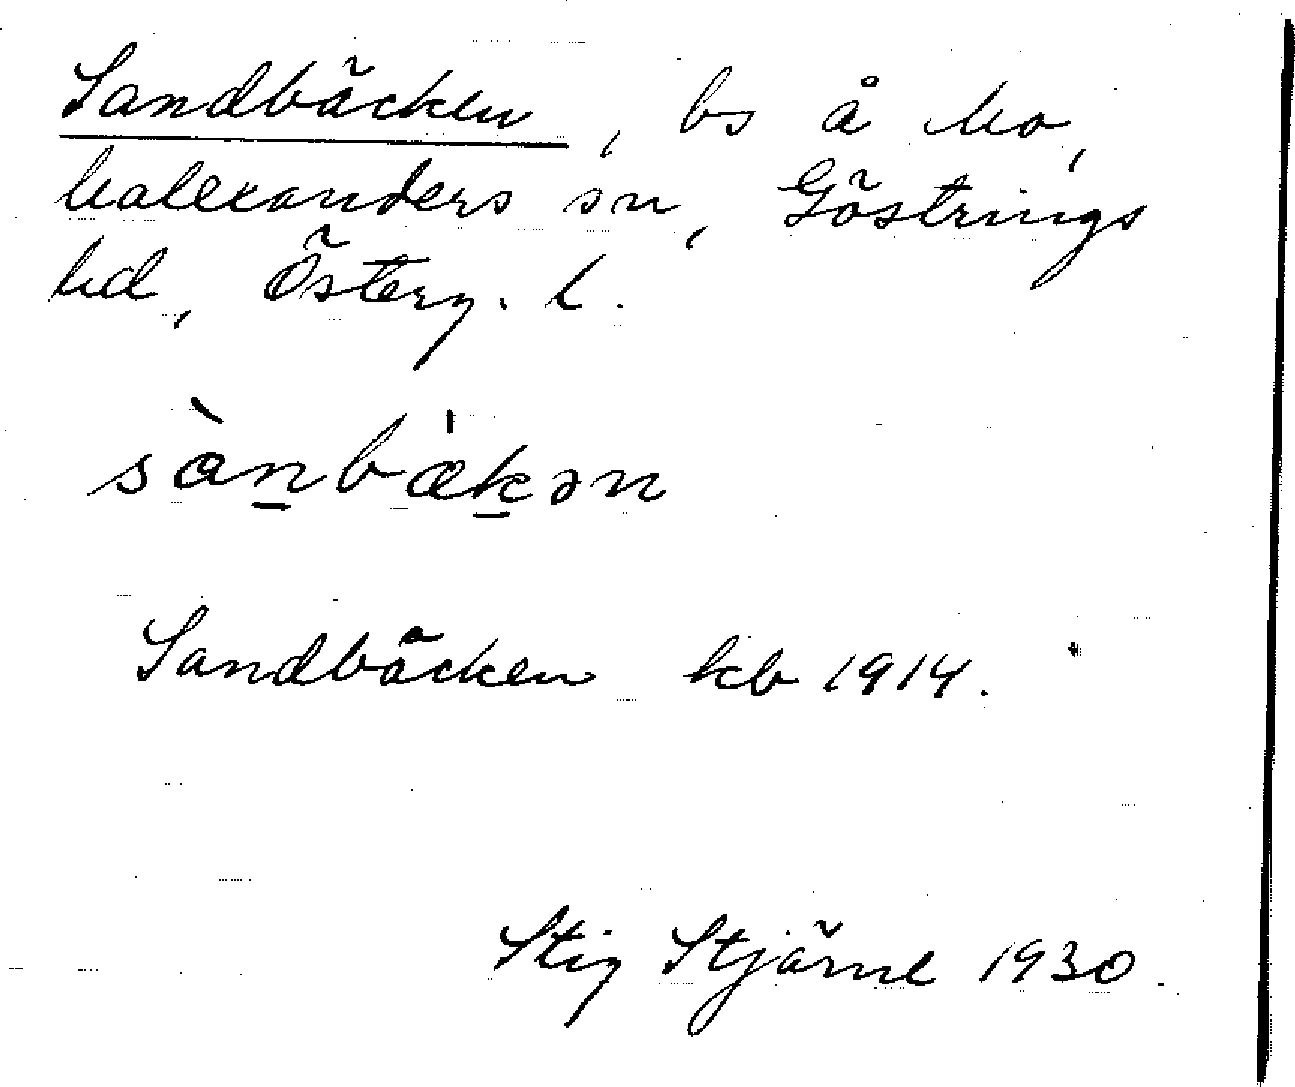 Sandbäcken, bs å Mo,
Malexanders sn, Göstrings
hd, Österg. l.
sànbæ̀kən
Sandbäcken kb 1914.
Stig Stjärne 1930.